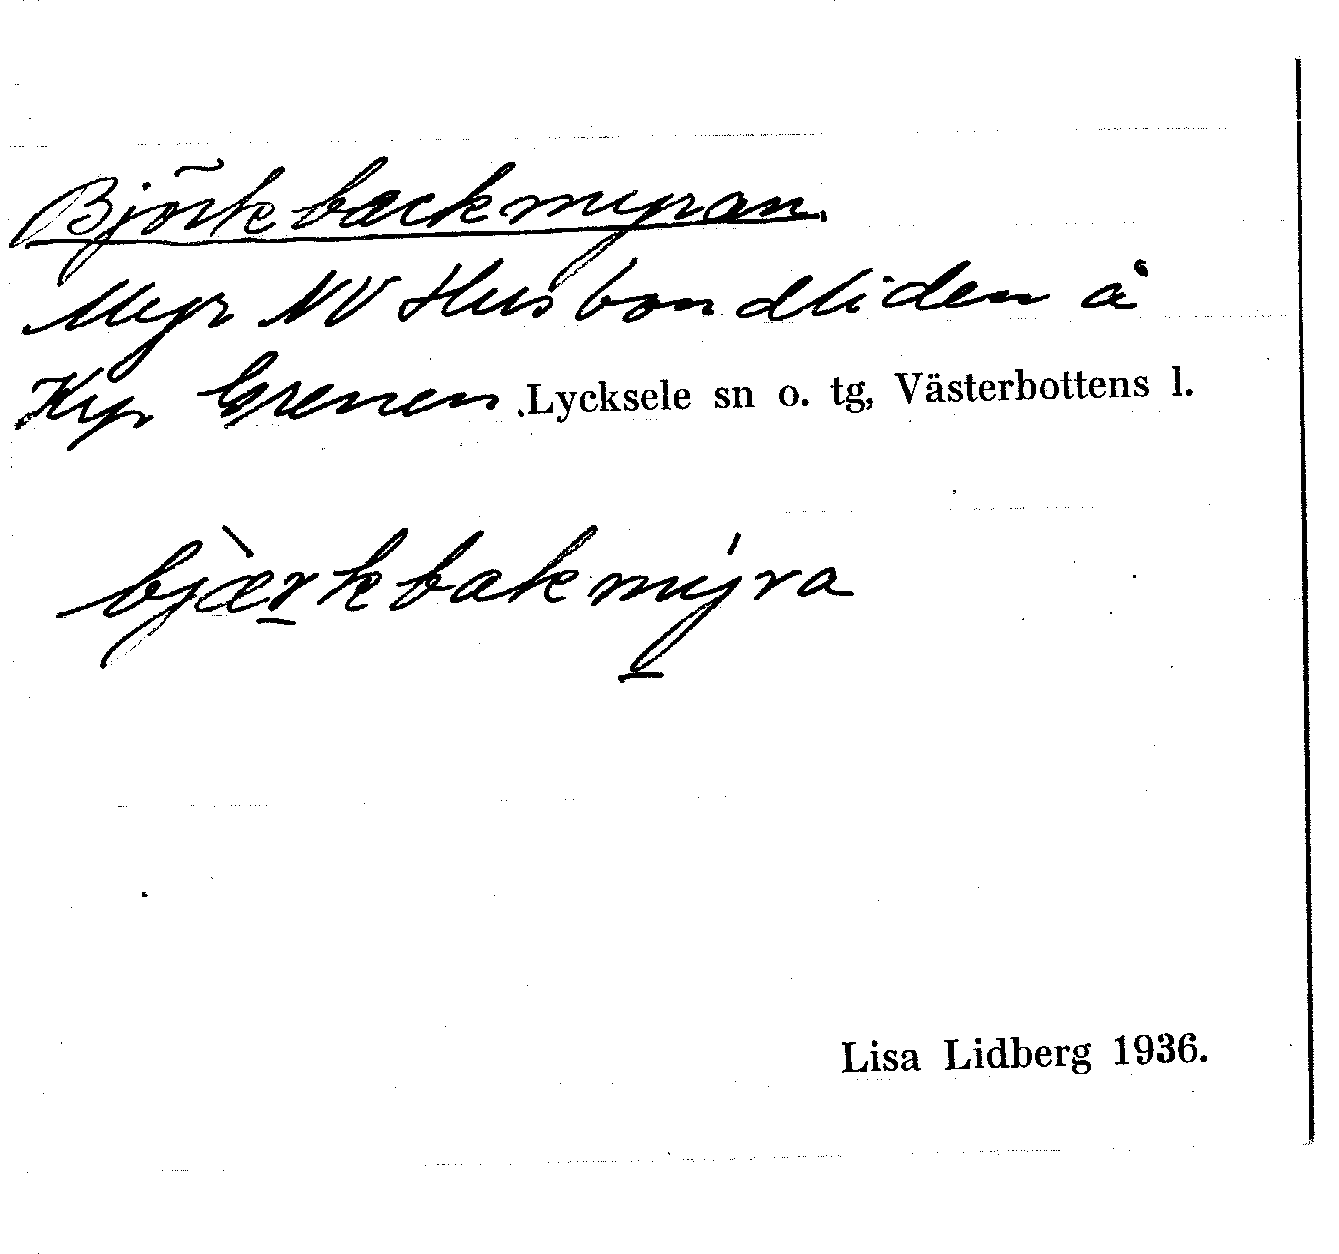 Björkbackmyran.
Myr NV Husbondliden å
Kyr Grenen. Lycksele sn o. tg, Västerbottens l.
bjæ̀rkbakmýra
Lisa Lidberg 1936.